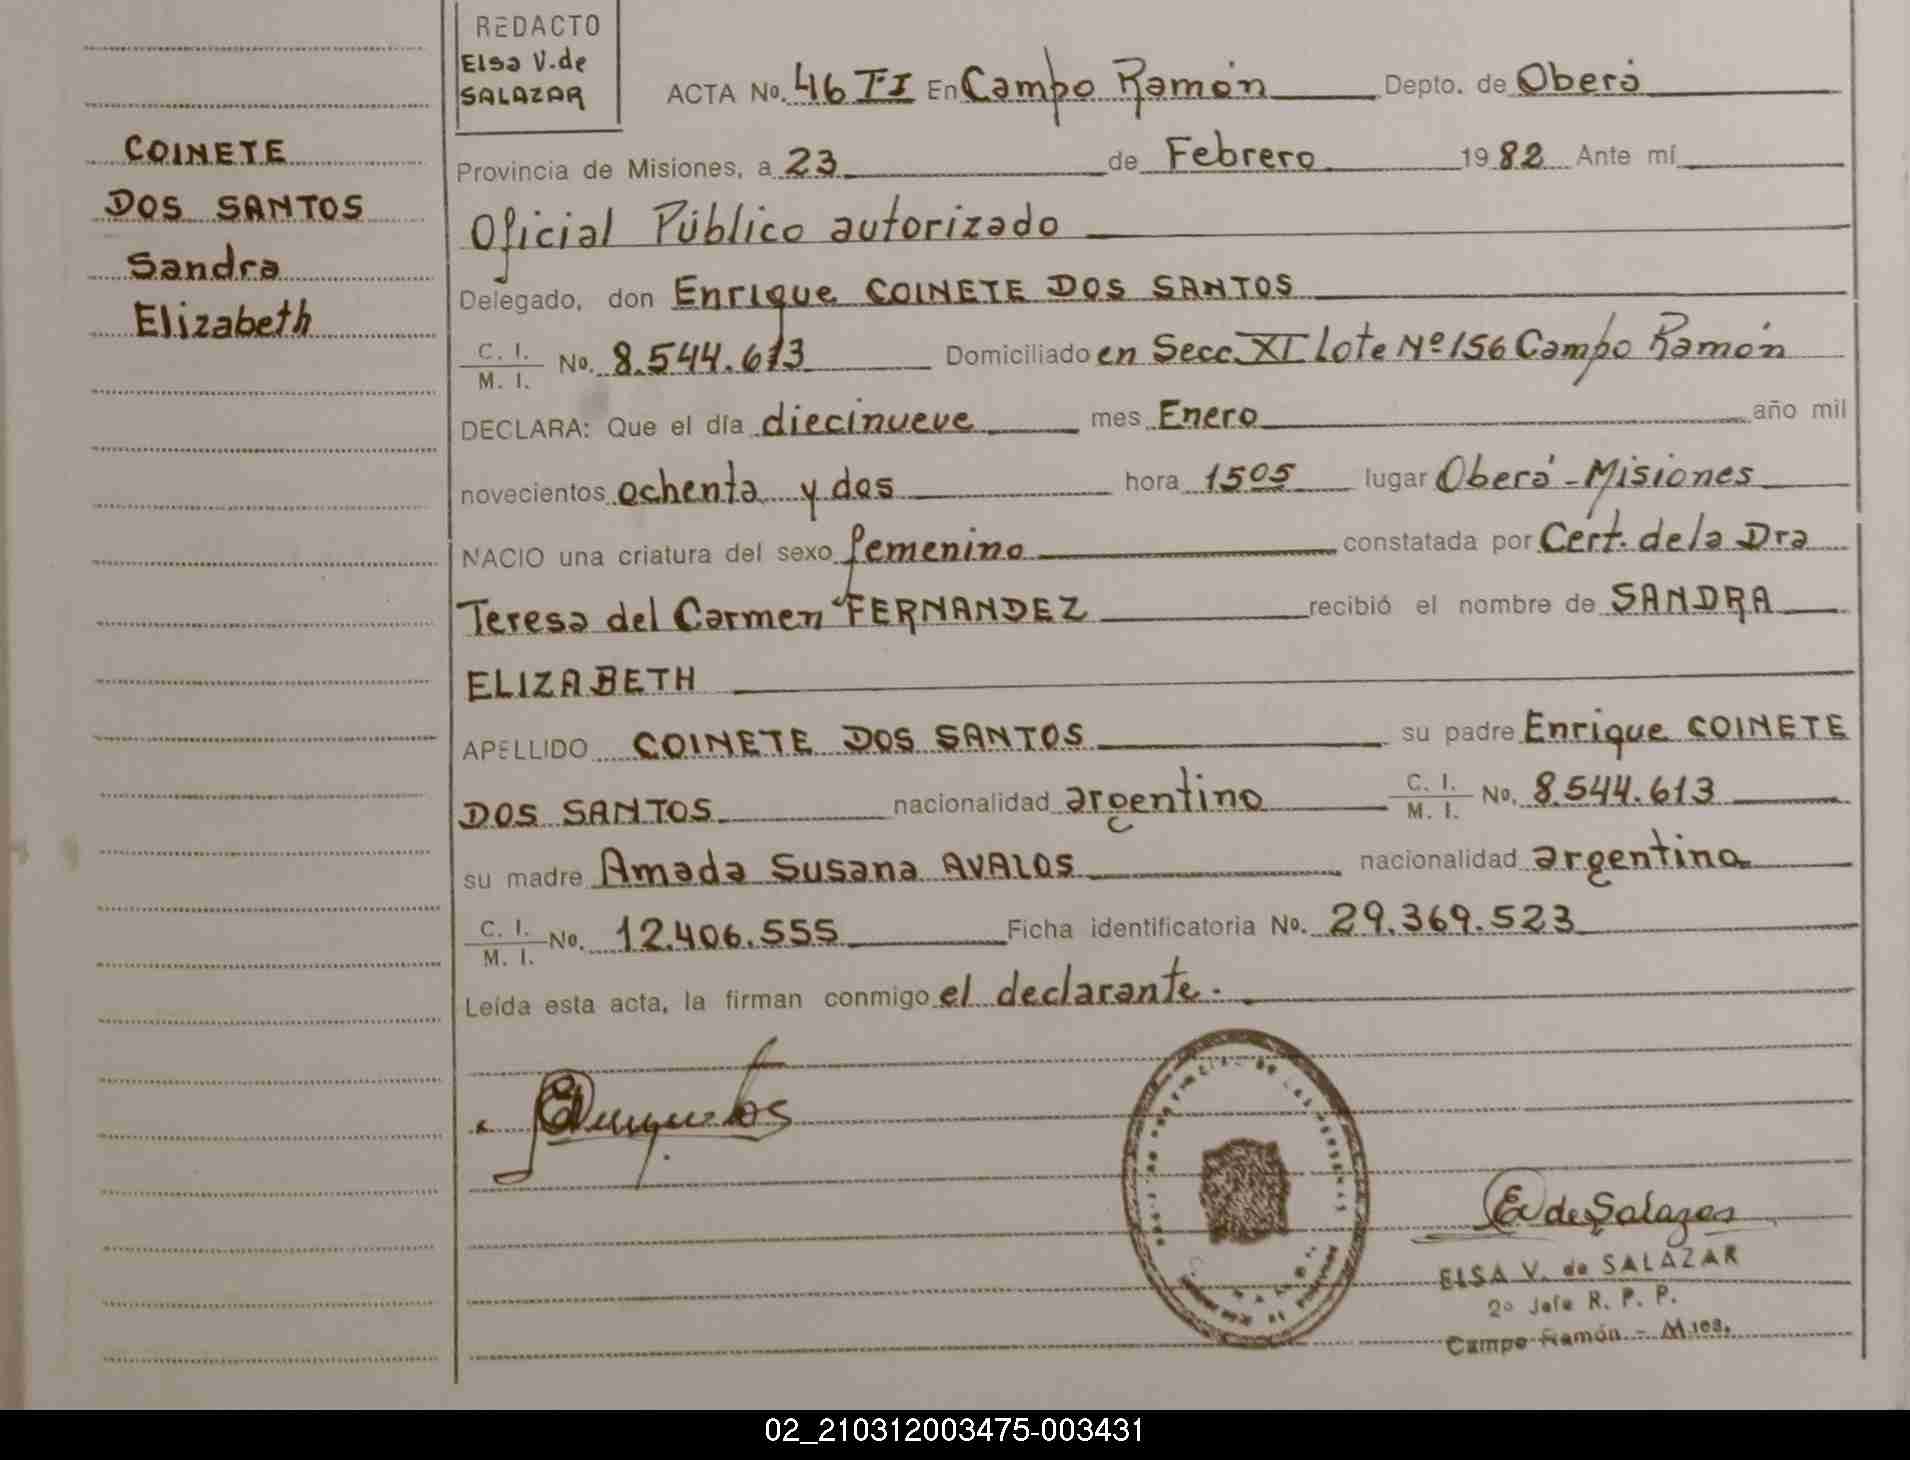 REDACTO
Elsa V. de
SALAZAR
COINETE
DOS SANTOS
Sandra
Elizabeth
ACTA No. 46 TI En Campo Ramón Depto. de Oberá
Provincia de Misiones, a 23 de Febrero 1982 Ante mí
Oficial Público autorizado
Delegado, don Enrique COINETE DOS SANTOS
C. I. / M. I. No. 8.544.613 Domiciliado en Secc. XI lote Nº 156 Campo Ramón
DECLARA: Que el día diecinueve mes Enero año mil
novecientos ochenta y dos hora 1505 lugar Oberá - Misiones
NACIO una criatura del sexo femenino constatada por Cert. de la Dra
Teresa del Carmen FERNANDEZ recibió el nombre de SANDRA
ELIZABETH
APELLIDO COINETE DOS SANTOS su padre Enrique COINETE
DOS SANTOS nacionalidad argentino C. I. / M. I. No. 8.544.613
su madre Amada Susana AVALOS nacionalidad argentina
C. I. / M. I. No. 12.406.555 Ficha identificatoria No. 29.369.523
Leída esta acta, la firman conmigo el declarante.
E V de Salazar
ELSA V. de SALAZAR
2º Jefe R. P. P.
Campo Ramón - Mnes.
02_210312003475-003431